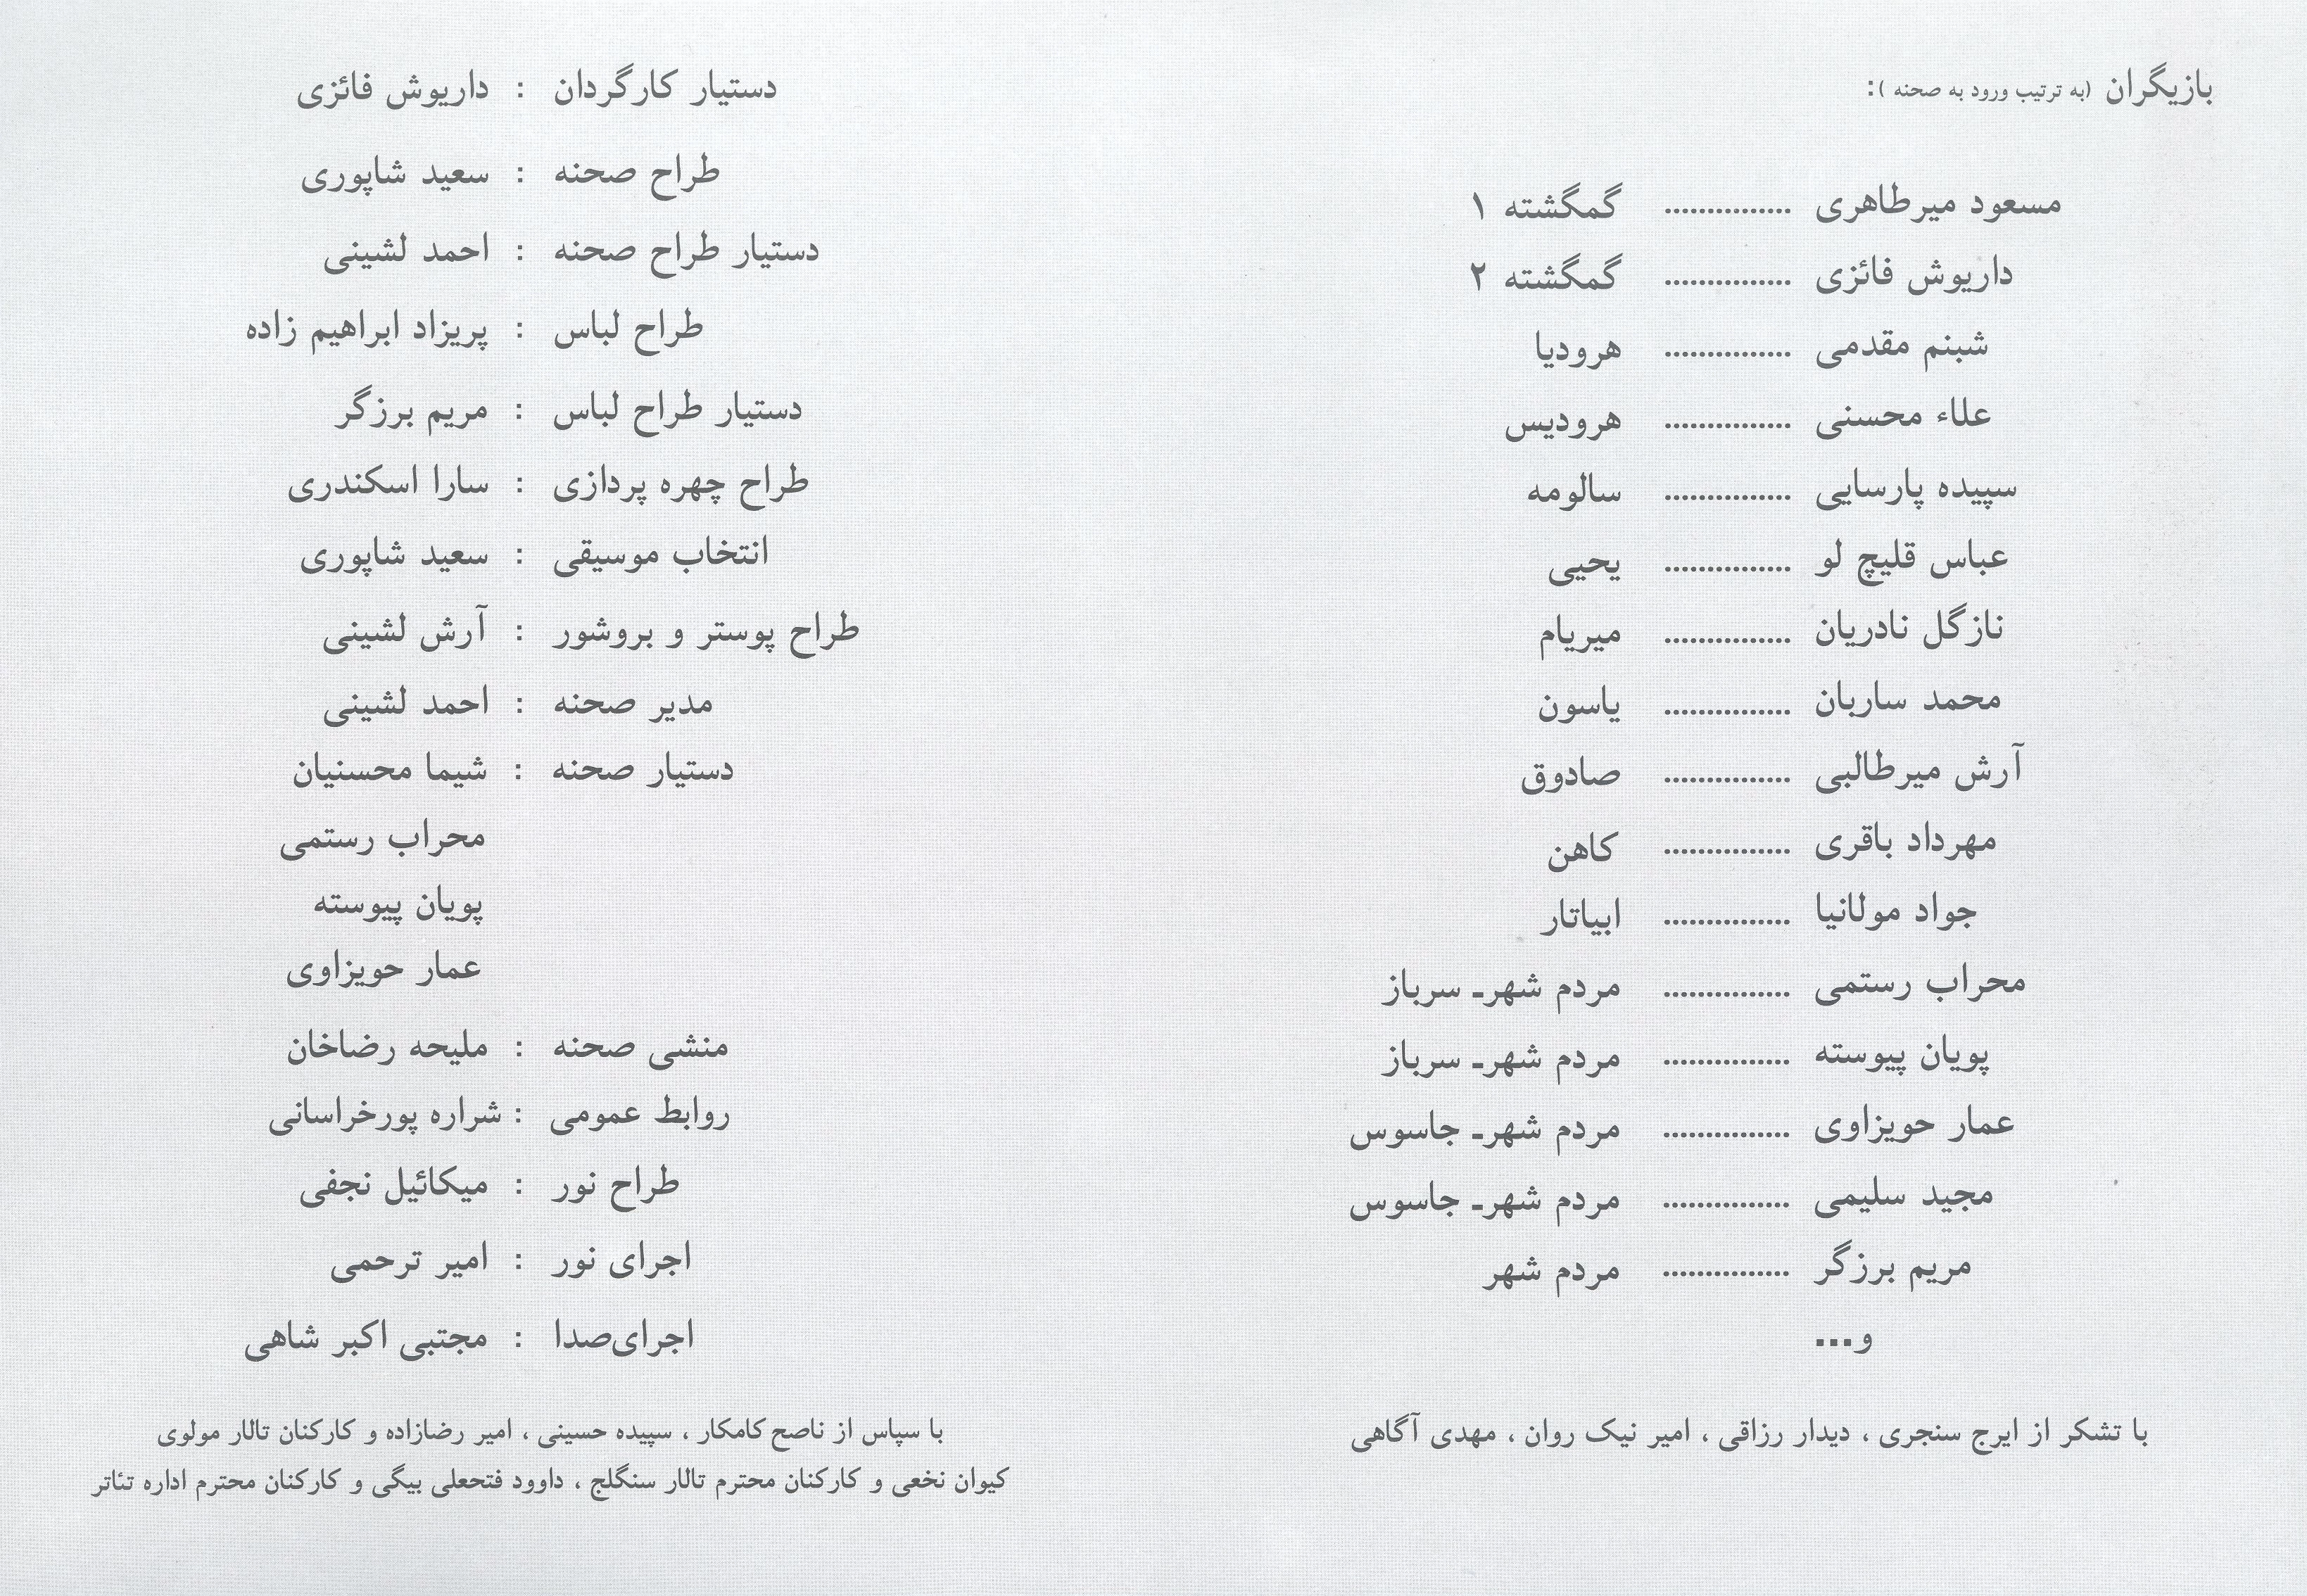 بازیگران (به ترتیب ورود به صحنه ):
مسعود میرطاهری ............... گمگشته ۱
داریوش فائزی ............... گمگشته ۲
شبنم مقدمی ............... هرودیا
علاء محسنی ............... هرودیس
سپیده پارسایی ............... سالومه
عباس قلیچ لو ............... یحیی
نازگل نادریان ............... میریام
محمد ساربان ............... یاسون
آرش میرطالبی ............... صادوق
مهرداد باقری ............... کاهن
جواد مولانیا ............... ابیاتار
محراب رستمی ............... مردم شهرـ سرباز
پویان پیوسته ............... مردم شهرـ سرباز
عمار حویزاوی ............... مردم شهرـ جاسوس
مجید سلیمی ............... مردم شهرـ جاسوس
مریم برزگر ............... مردم شهر
و...
با تشکر از ایرج سنجری ، دیدار رزاقی ، امیر نیک روان ، مهدی آگاهی
دستیار کارگردان : داریوش فائزی
طراح صحنه : سعید شاپوری
دستیار طراح صحنه : احمد لشینی
طراح لباس : پریزاد ابراهیم زاده
دستیار طراح لباس : مریم برزگر
طراح چهره پردازی : سارا اسکندری
انتخاب موسیقی : سعید شاپوری
طراح پوستر و بروشور : آرش لشینی
مدیر صحنه : احمد لشینی
دستیار صحنه : شیما محسنیان
محراب رستمی
پویان پیوسته
عمار حویزاوی
منشی صحنه : ملیحه رضاخان
روابط عمومی : شراره پورخراسانی
طراح نور : میکائیل نجفی
اجرای نور : امیر ترحمی
اجرای‌صدا : مجتبی اکبر شاهی
با سپاس از ناصح کامکار ، سپیده حسینی ، امیر رضازاده و کارکنان تالار مولوی
کیوان نخعی و کارکنان محترم تالار سنگلج ، داوود فتحعلی بیگی و کارکنان محترم اداره تئاتر